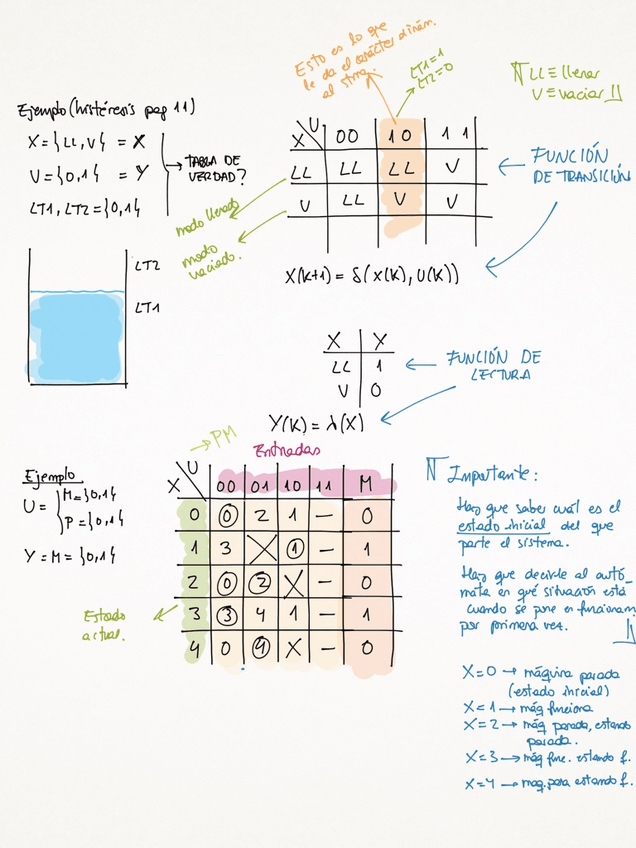 Esto es lo que
le da el carácter dinám.
al stma.
LT1=1
LT2=0
∏ LL ≡ llenar
V ≡ vaciar
Ejemplo (histéresis pag 11)
X={LL,V} = X
U={0,1} = Y
LT1, LT2={0,1}
TABLA DE
VERDAD?
X U 00 10 11
LL LL LL V
V LL V V
modo llenado
modo
vaciado.
FUNCIÓN
DE TRANSICIÓN
X(k+1) = δ(x(k), U(k))
LT2
LT1
X Y
LL 1
V 0
FUNCIÓN DE
LECTURA
Y(k) = λ(X)
→ PM
Entradas
Ejemplo
U = { M={0,1}
P={0,1}
Y=M={0,1}
X U 00 01 10 11 M
0 0 2 1 — 0
1 3 X 1 — 1
2 0 2 X — 0
3 3 4 1 — 1
4 0 4 X — 0
Estado
actual.
Importante:
Hay que saber cuál es el
estado inicial del que
parte el sistema.
Hay que decirle al autó_
mata en qué situación está
cuando se pone en funcionam
por primera vez.
X=0 → máquina parada
(estado inicial)
X=1 → máq funciona
X=2 → máq parada, estando
parada.
X=3 → máq func. estando f.
X=4 → maq. para estando f.